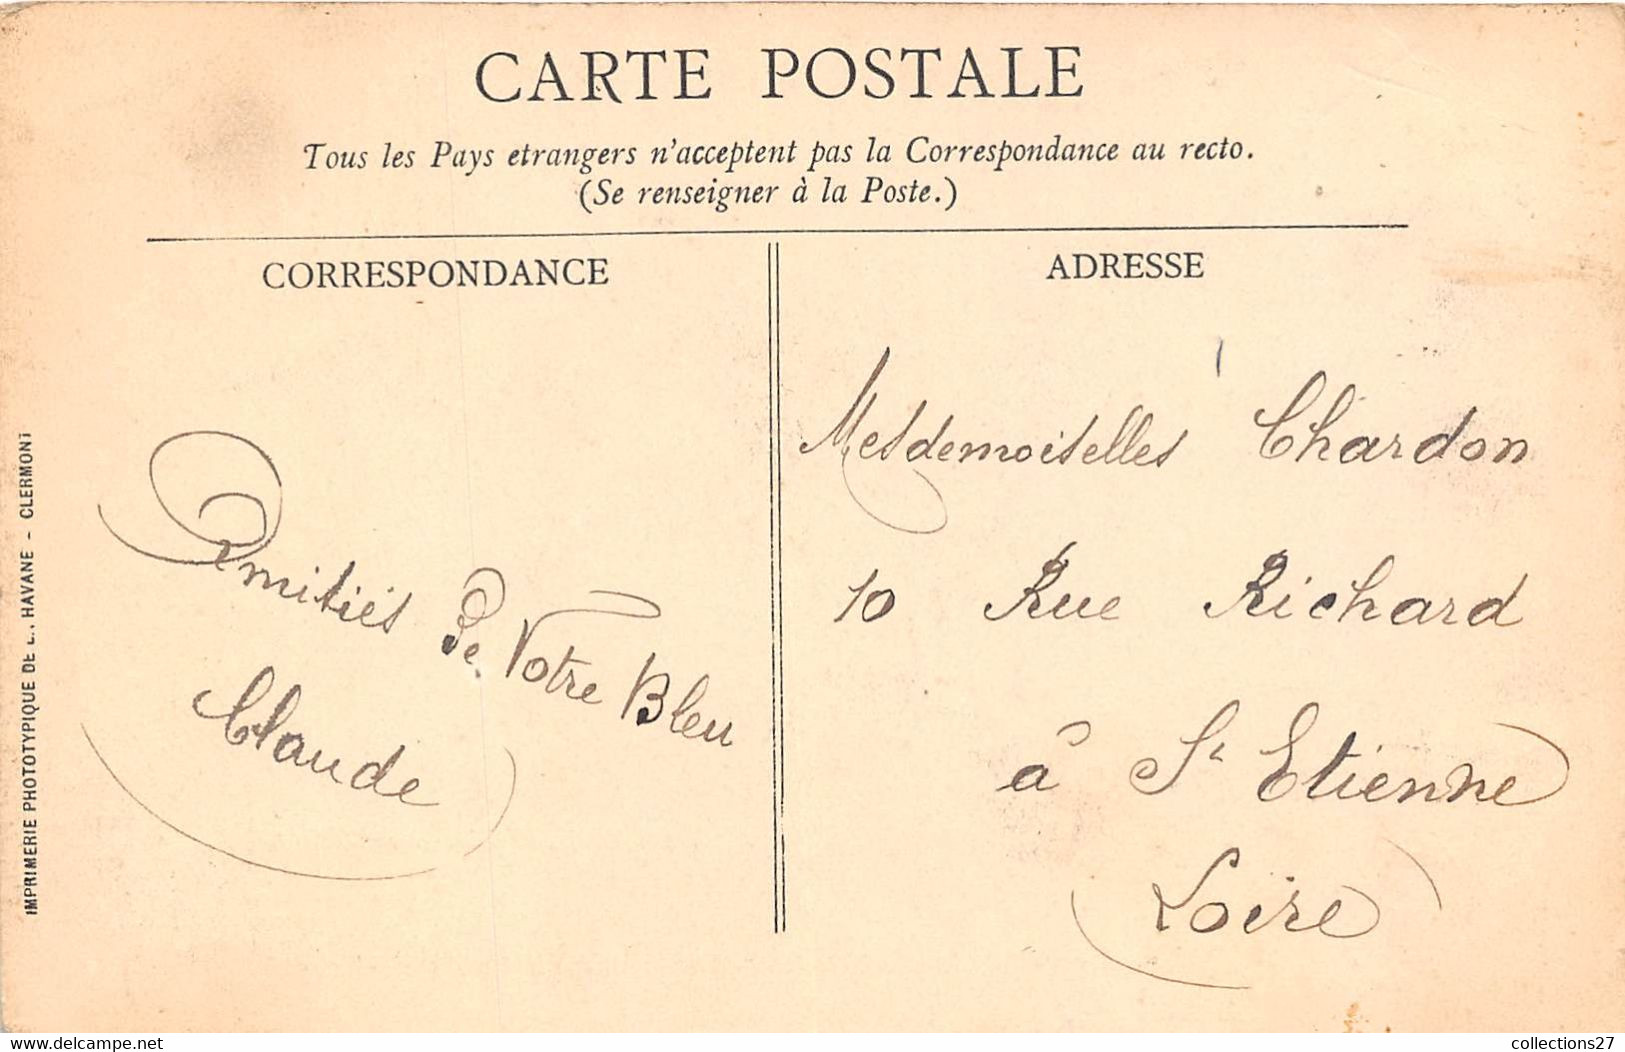 CARTE POSTALE
Tous les Pays etrangers n'acceptent pas la Correspondance au recto.
(Se renseigner à la Poste.)
CORRESPONDANCE
Amitiés De Votre Bleu
Claude
ADRESSE
Mesdemoiselles Chardon
10 Rue Richard
à St Etienne
Loire
IMPRIMERIE PHOTOTYPIQUE DE L. HAVANE - CLERMONT
www.delcampe.net
collections27